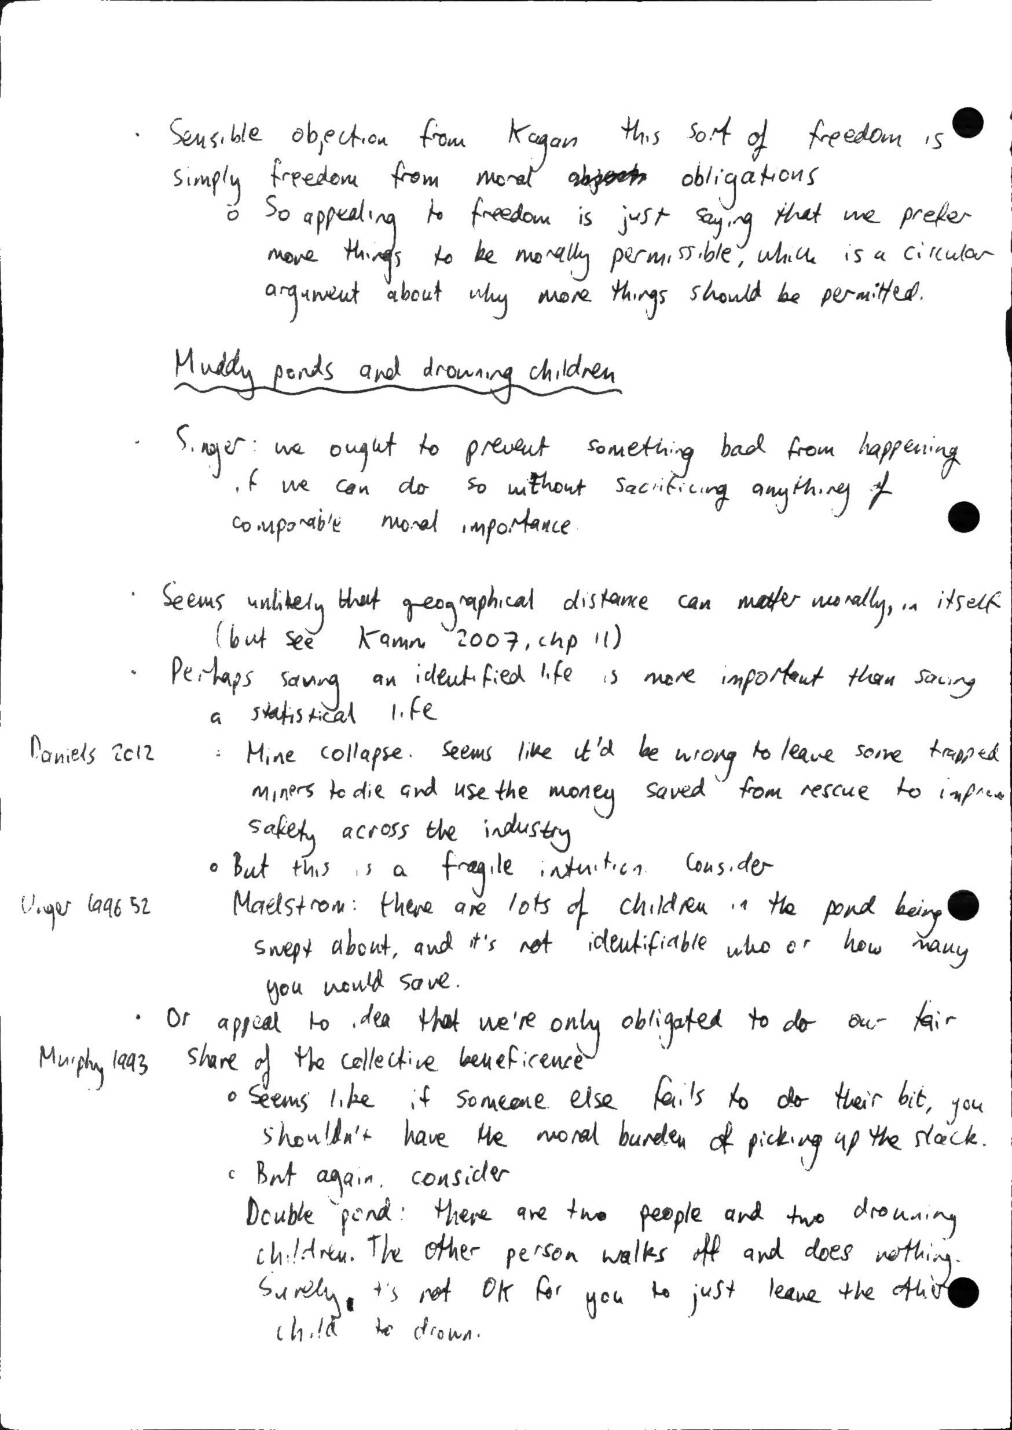 · Sensible objection from Kagan this sort of freedom is
simply freedom from moral obligations
o So appealing to freedom is just saying that we prefer
more things to be morally permissible, which is a circular
argument about why more things should be permitted.
Muddy ponds and drowning children
· Singer: we ought to prevent something bad from happening
if we can do so without sacrificing anything of
comparable moral importance.
· Seems unlikely that geographical distance can matter morally, in itself
(but see Kamm 2007, chp 11)
· Perhaps saving an identified life is more important than saving
a statistical life
Daniels 2012 : Mine collapse. Seems like it'd be wrong to leave some trapped
miners to die and use the money saved from rescue to improve
safety across the industry
o But this is a fragile intuition. Consider
Unger 1996 52 Maelstrom: there are lots of children in the pond being
swept about, and it's not identifiable who or how many
you would save.
· Or appeal to idea that we're only obligated to do our fair
Murphy 1993 share of the collective beneficence
o Seems like if someone else fails to do their bit, you
shouldn't have the moral burden of picking up the slack.
o But again, consider
Double pond: there are two people and two drowning
children. The other person walks off and does nothing.
Surely it's not OK for you to just leave the other
child to drown.